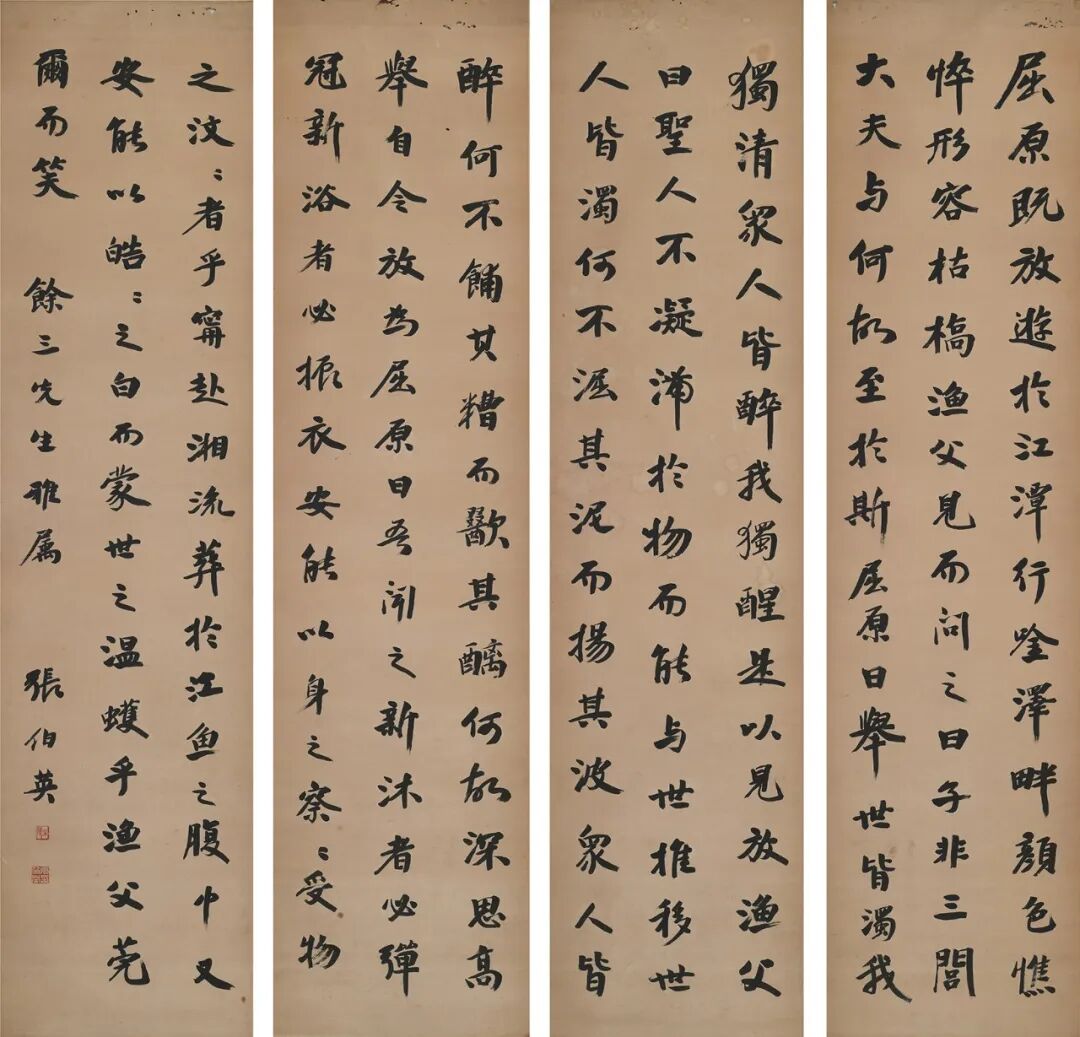 屈原既放遊於江潭行唫澤畔顏色憔
悴形容枯槁漁父見而问之曰子非三閭
大夫与何故至於斯屈原曰舉世皆濁我
獨清衆人皆醉我獨醒是以見放漁父
曰聖人不凝滯於物而能与世推移世
人皆濁何不淈其泥而揚其波衆人皆
醉何不餔其糟而歠其醨何故深思高
舉自令放為屈原曰吾闻之新沐者必彈
冠新浴者必振衣安能以身之察〻受物
之汶〻者乎寗赴湘流葬於江鱼之腹中又
安能以皓〻之白而蒙世之温蠖乎漁父莞
爾而笑 餘三先生雅属 張伯英